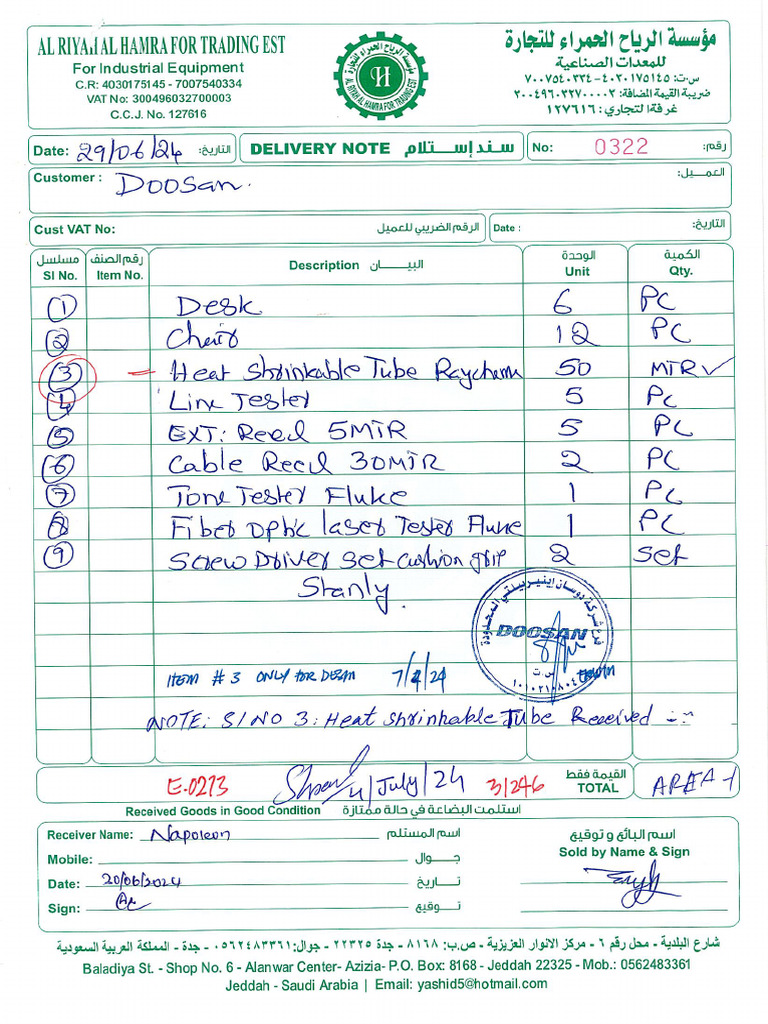 AL RIYAH AL HAMRA FOR TRADING EST
For Industrial Equipment
C.R: 4030175145 - 7007540334
VAT No: 300496032700003
C.C.J. No. 127616
مؤسسة الرياح الحمراء للتجارة
AL RIYAH AL HAMRA FOR TRADING EST
H
مؤسسة الرياح الحمراء للتجارة
للمعدات الصناعية
س.ت: ٤٠٣٠١٧٥١٤٥ - ٧٠٠٧٥٤٠٣٣٤
ضريبة القيمة المضافة: ٣٠٠٤٩٦٠٣٢٧٠٠٠٠٣
غرفة التجاري: ١٢٧٦١٦
Date: 29/06/24 التاريخ:
DELIVERY NOTE سند إستلام
No: 0322 رقم:
Customer : Doosan. العميل:
Cust VAT No: الرقم الضريبي للعميل
Date : التاريخ:
مسلسل رقم الصنف البيان الوحدة الكمية
Sl No. Item No. Description Unit Qty.
1 Desk 6 PC
2 Chair 12 PC
3 – Heat Shrinkable Tube Raychem 50 MTR ✓
4 Line Tester 5 PC
5 EXT: Reel 5MTR 5 PC
6 Cable Reel 30MTR 2 PC
7 Tone Tester Fluke 1 PC
8 Fiber optic laser Tester Fluke 1 PC
9 Screw Driver set cushion grip 2 Set
Stanly.
فرع شركة دوسان اينيربيلتي المحدودة
DOOSAN
س.ت
ITEM # 3 ONLY FOR 7/4/24
NOTE: S/NO 3: Heat Shrinkable Tube Received
E-0273 4/July/24 3/246 القيمة فقط TOTAL AREA-1
Received Goods in Good Condition استلمت البضاعة في حالة ممتازة
Receiver Name: Napoleon اسم المستلم
Mobile: جوال
Date: 20/06/2024 تاريخ
Sign: توقيع
اسم البائع و توقيع
Sold by Name & Sign
شارع البلدية - محل رقم ٦ - مركز الانوار العزيزية - ص.ب: ٨١٦٨ - جدة ٢٢٣٢٥ - جوال: ٠٥٦٢٤٨٣٣٦١ - جدة - المملكة العربية السعودية
Baladiya St. - Shop No. 6 - Alanwar Center- Azizia- P.O. Box: 8168 - Jeddah 22325 - Mob.: 0562483361
Jeddah - Saudi Arabia | Email: yashid5@hotmail.com